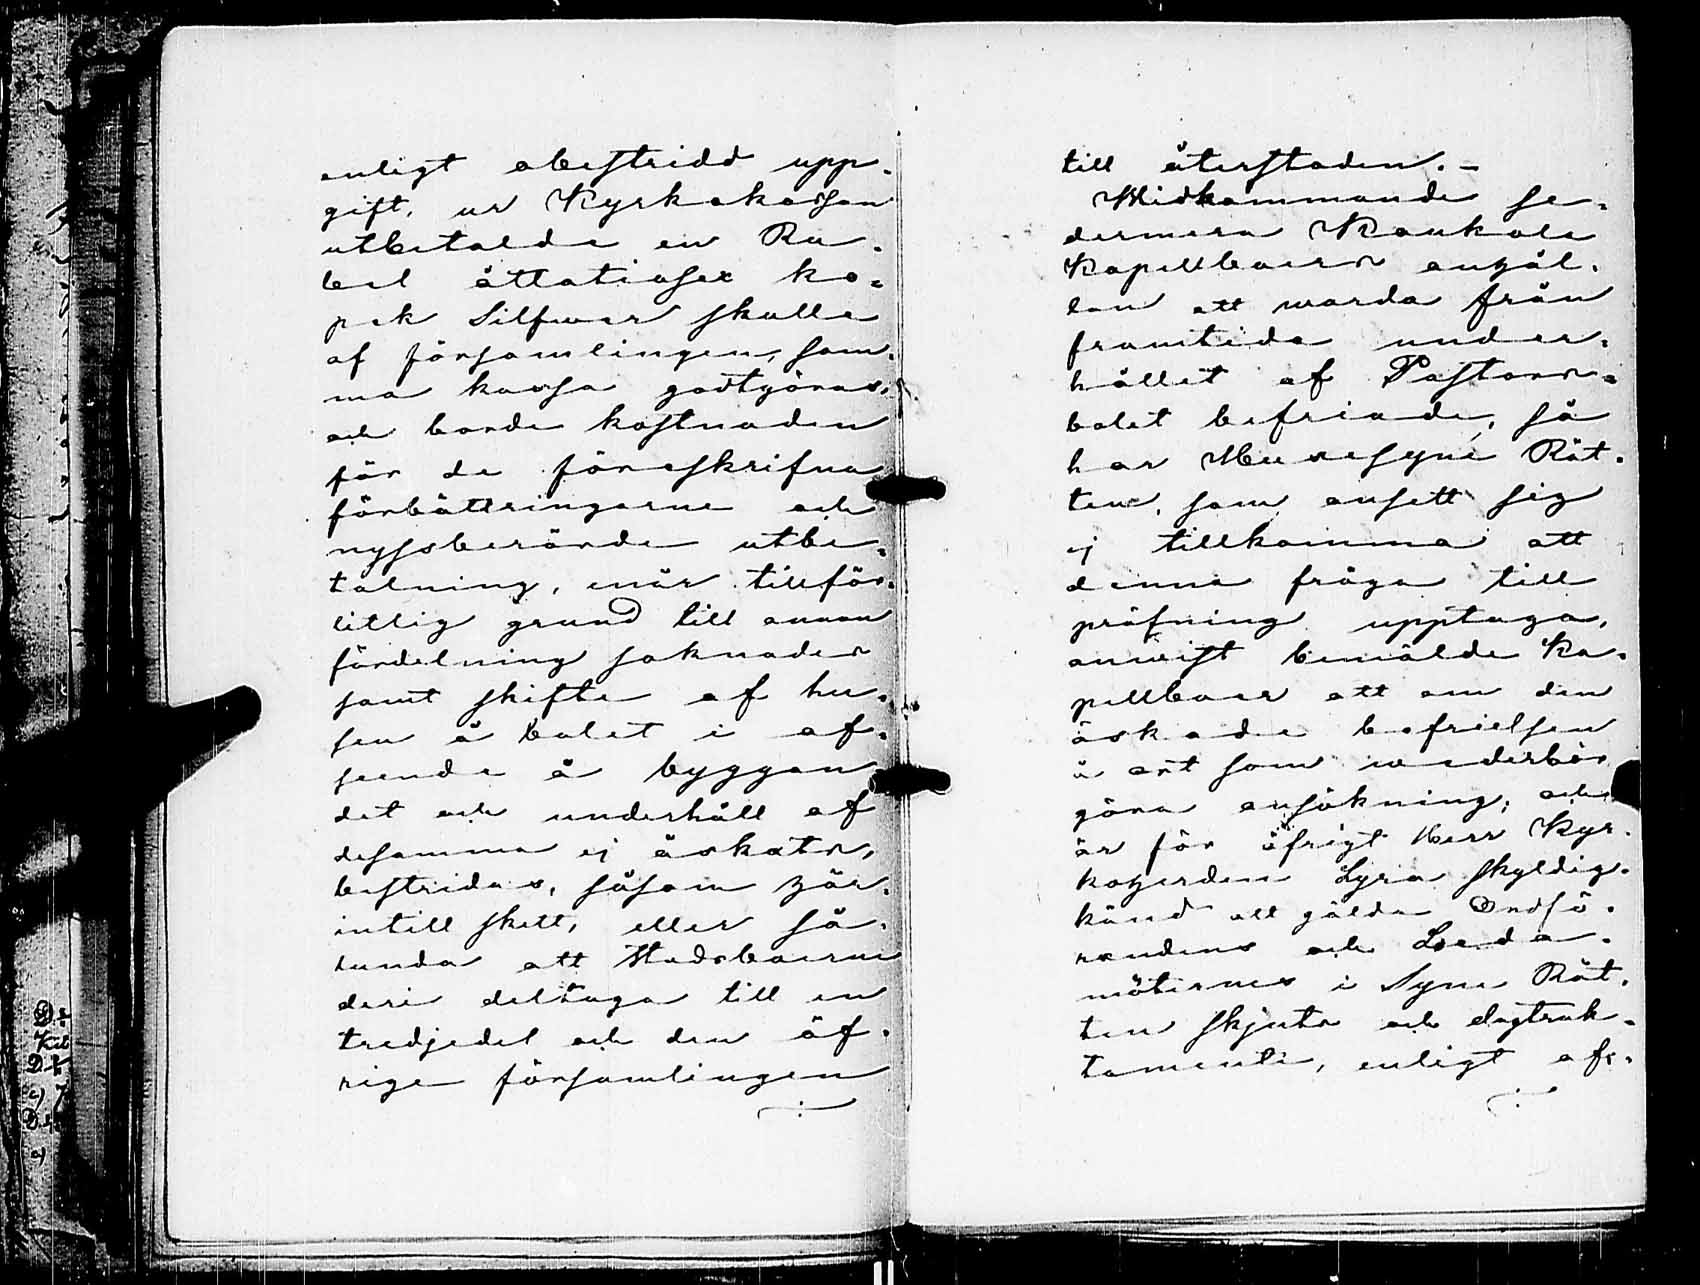 enligt obestridd upp-
gift, ur Kyrkokassan
utbetalde en Ru-
bel åttatiosex ko-
pek Silfwer skulle
af församlingens sam-
ma kassa godtgöras,
och borde kostnaden
för de föreskrifna
förbättringarne och
nyssberörde utbe-
talning, enär tillför-
litlig grund till annan
fördelning saknades
samt skifte af hu-
sen å bolet i af-
seende å byggan
det och underhåll af
desamma ej äskats,
bestridas, såsom här-
intill skett, eller så-
lunda att Stadsboerne
deri deltaga till en
tredjedel och den öf-
rige församlingen
till återstoden. –
Widkommande se-
dermera Kaukola
Kapellboers anhål-
lan att warda från
framtida under-
hållet af Pastors-
bolet befriade, så
har Husesyns Rät-
ten, som ansett sig
ej tillkomma att
denna fråga till
pröfning upptaga,
anwist bemälde Ka-
pellboer att om den
äskade befrielsen
å ort som wederbör
göra ansökning; och
är för öfrigt Herr Kyr-
koherden Lyra skyldig-
känd att gälda Ordfö-
randens och Leda-
möternes i Syne Rät-
ten skjuts och dagtrak-
tamente, enligt afs-